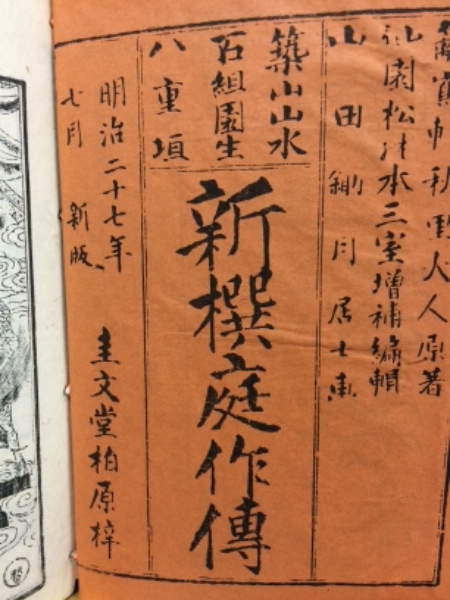 秋里 原著
園松 水三室増補編輯
山田鋤月居士画
築山山水
石組園生
八重垣
新撰庭作傳
明治二十七年
七月 新版
圭文堂柏原梓